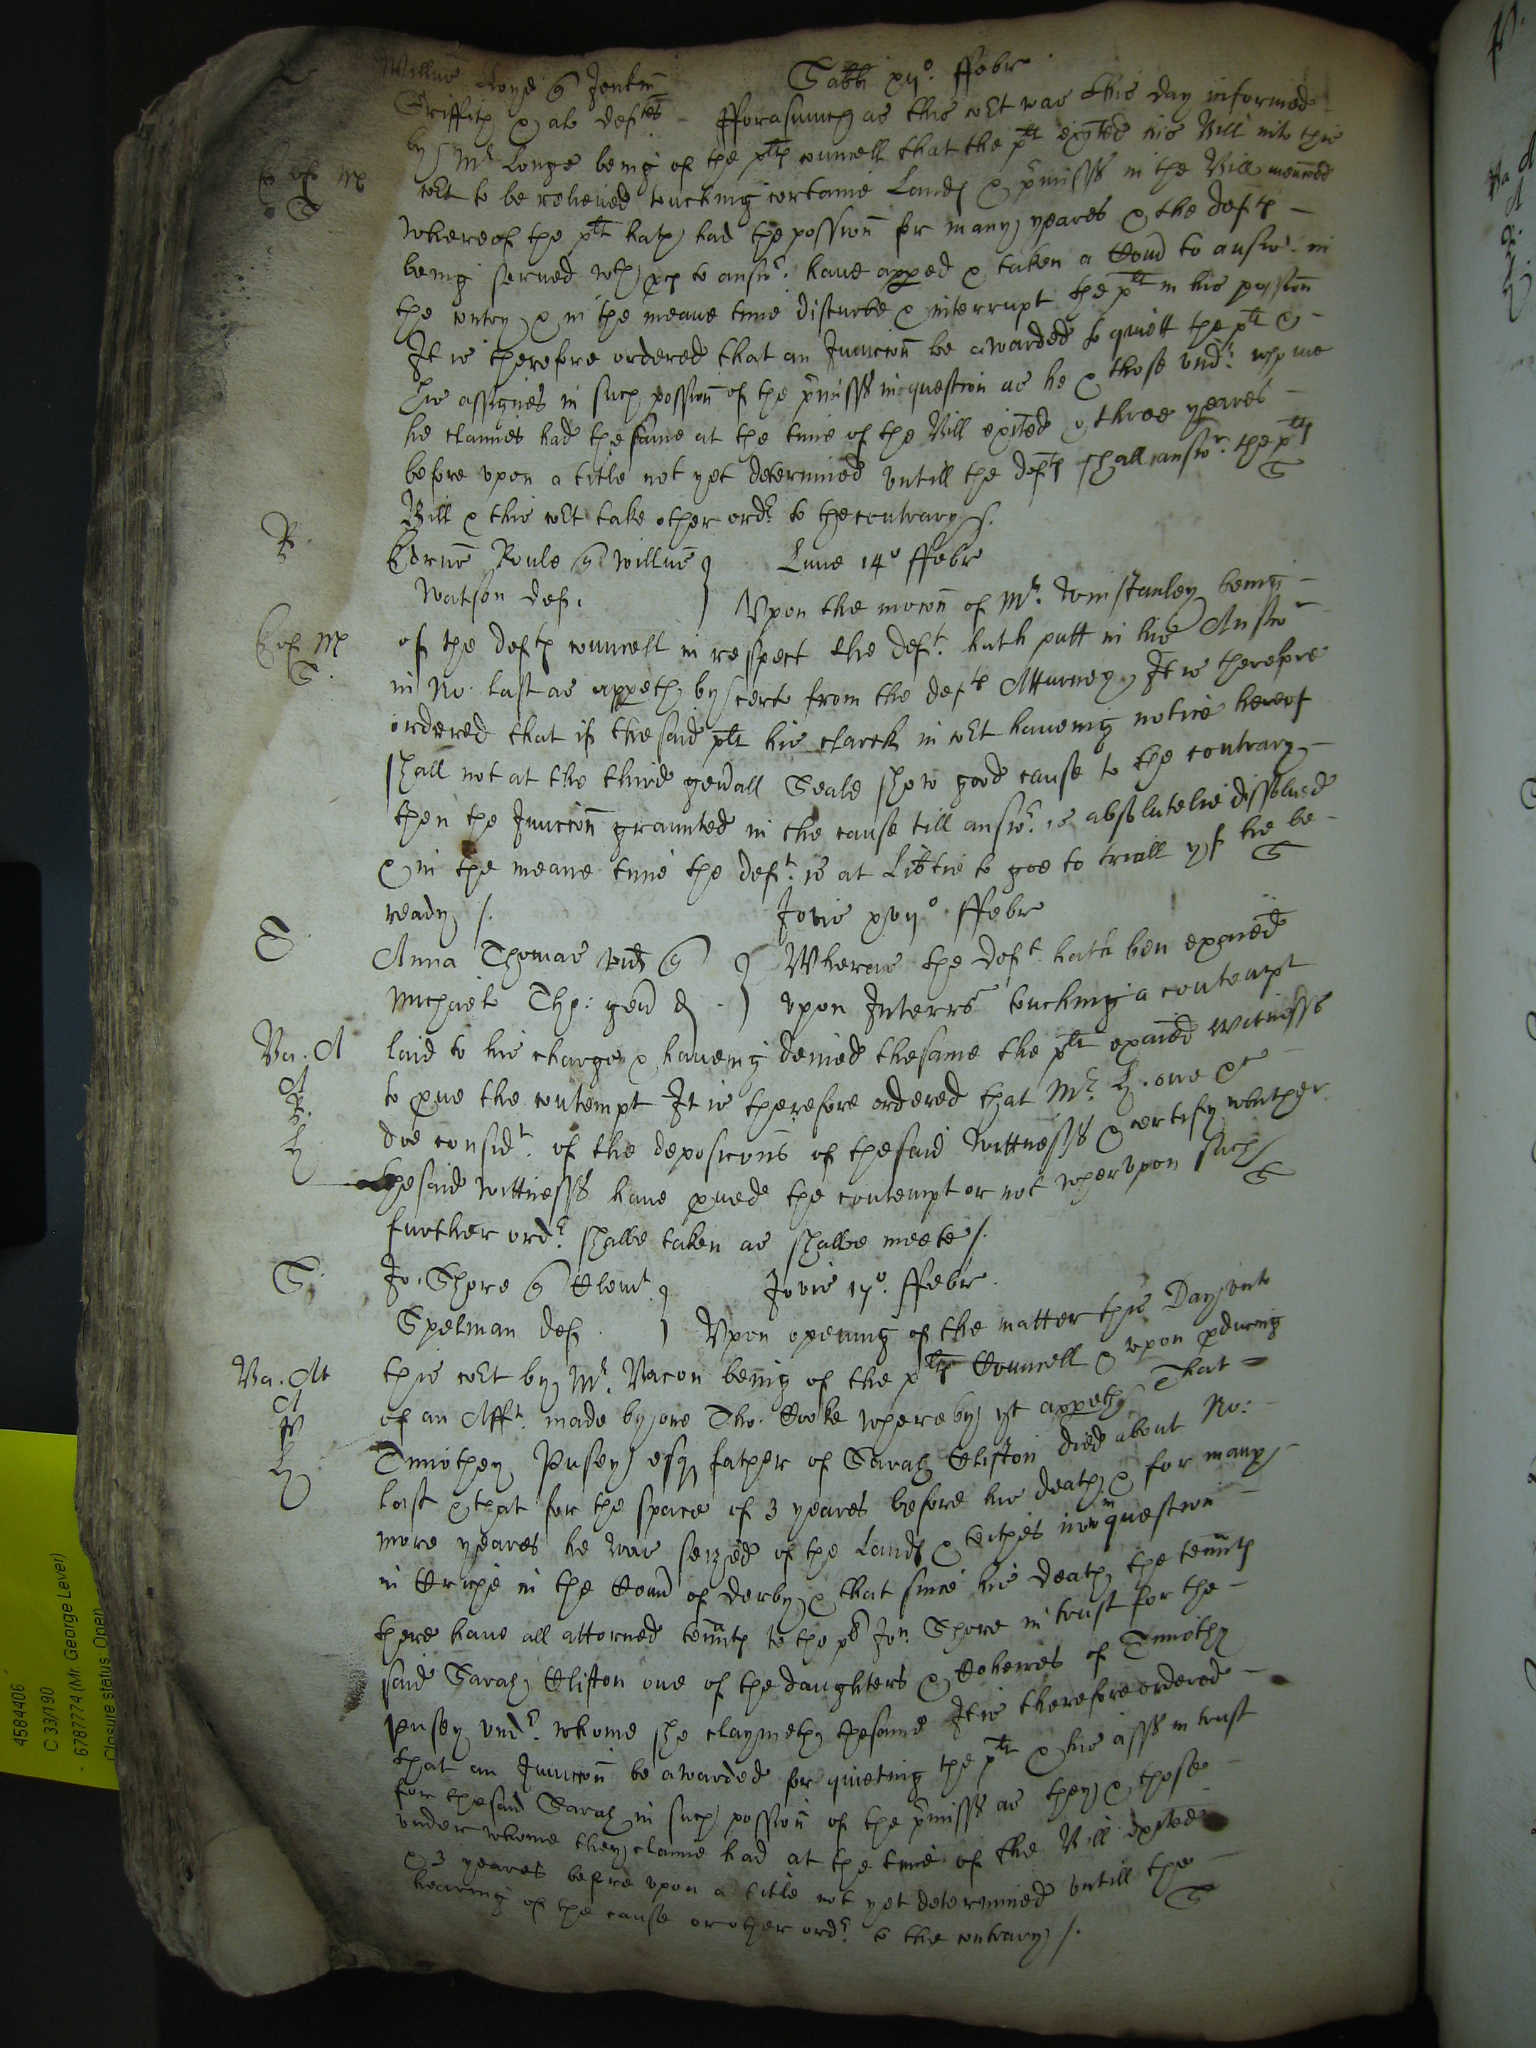 Willūs Longe q Jenkin
Griffith & al defts
Sabbī xijº. ffebr
Fforasmuch as this cort was this day informed
by Mr Longe being of the pltes councell that the plt exited his Bill into this
cort to be releived touching certaine Lands & p̄misss in the Bill mencoed
whereof the plt hath had the possion for many yeares & the defts
being served wth pcs to answr. have apped & taken a Com̄ to answr. in
the contry & in the meane time disturbe & interrupt the plt in his possion
It is therefore ordered that an Iniuccon be awarded to quiett the plt &
his assignes in such possion of the p̄misss in question as he & those undr. whome
he claimes had the same at the time of the Bill exited & three yeares
before vpon a title not yet determined vntill the defts shall answr. the plts
Bill & this cort take other ordr to the contrary /.
R
Edrus Poule q Willūs
Watson def.
Lune 14º ffebr
Vpon the mocon of Mr. Winstanley being
of the defts councell in respect the deft. hath putt in his Answr
in No. last as appeth by certe from the defts Atturney It is therefore
ordered that if the said plt his clarck in cort haveing notice hereof
shall not at the third gen̄all Seale shew good cause to the contrary
then the Iniuccon graunted in the cause till answr. is absolutelie dissolved
& in the meane time the deft. is at Lib̄tie to goe to triall yf he be
ready /.
Jovis xvijº ffebr
S
Anna Thomas vid q
Michaell Tho: gen̄ d
Wheras the deft. hath ben exaied
vpon Interrs touching a contempt
laid to his charge & haveing denied the same the plt exaied Witnesss
to pue the contempt It is therefore ordered that Mr Ly. one &c
doe considr. of the deposicons of the said Wittnesss & certify whether
the said Wittnesss have pued the contempt or not wherupon such
further ordr. shalbe taken as shalbe meete /.
S
Jo. Shore q Clemt.
Spelman def
Jovis 17º. ffebr.
Vpon opening of the matter this Day vnto
this cort by Mr. Bacon being of the plts Councell & vpon pducing
of an Afft. made by one Tho. Cooke whereby yt appeth That
Timothey Pusey esqr father of Sarah Clifton died about No:
last & that for the space of 3 yeares before his death & for many
more yeares he was seized of the Lands & tithes now in question
in Criche in the Com̄ of Derby & that since his death the teñnts
there have all attorned teñnts to the pl Jon. Shore in trust for the
said Sarah Clifton one of the daughters & Coheires of Timothy
Pusey vndr. whome she claymeth the same It is therefore ordered
that an Iniuccon be awarded for quieting the plt & his asss in trust
for the said Sarah in such possion of the p̄misss as they & those
vnder whome they claime had at the time of the Bill exited
& 3 yeares before vpon a title not yet determined vntill the
hearing of the cause or other ordr. to the contrary /.
4584406
C 33/190
6787774 (Mr. George Lever)
Closure status: Open